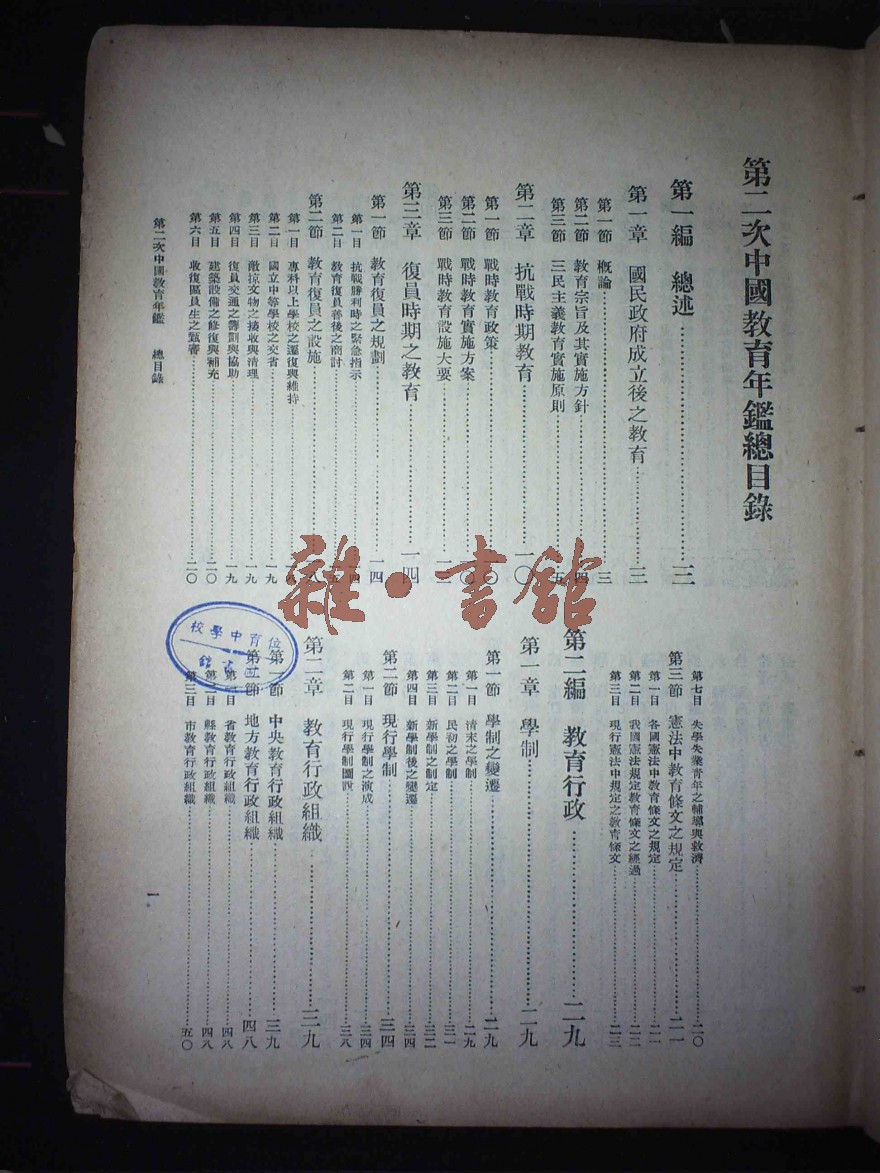 第二次中國教育年鑑總目錄
第一編 總述……三
第一章 國民政府成立後之教育……三
第一節 概論……三
第二節 教育宗旨及其實施方針……四
第三節 三民主義教育實施原則……五
第二章 抗戰時期教育……一〇
第一節 戰時教育政策……一〇
第二節 戰時教育實施方案……一〇
第三節 戰時教育設施大要……一二
第三章 復員時期之教育……一四
第一節 教育復員之規劃……一四
第一目 抗戰勝利時之緊急指示
第二目 教育復員善後之商討
第二節 教育復員之設施……一八
第一目 專科以上學校之遷復與維持
第二目 國立中等學校之交省……一九
第三目 敵掠文物之接收與清理……一九
第四目 復員交通之籌劃與協助……一九
第五目 建築設備之修復與補充……二〇
第六目 收復區員生之甄審……二〇
第七目 失學失業青年之輔導與救濟……二〇
第三節 憲法中教育條文之規定……二一
第一目 各國憲法中教育條文之規定……二一
第二目 我國憲法規定教育條文之經過……二二
第三目 現行憲法中規定之教育條文……二三
第二編 教育行政……二九
第一章 學制……二九
第一節 學制之變遷……二九
第一目 清末之學制……二九
第二目 民初之學制……三一
第三目 新學制之制定……三二
第四目 新學制後之變遷……三四
第二節 現行學制……三四
第一目 現行學制之演成……三四
第二目 現行學制圖說……三八
第二章 教育行政組織……三九
第一節 中央教育行政組織……三九
第二節 地方教育行政組織……四八
第一目 省教育行政組織……四八
第二目 縣教育行政組織……四八
第三目 市教育行政組織……五〇
第二次中國教育年鑑 總目錄
一
雜·書館
位育中學校